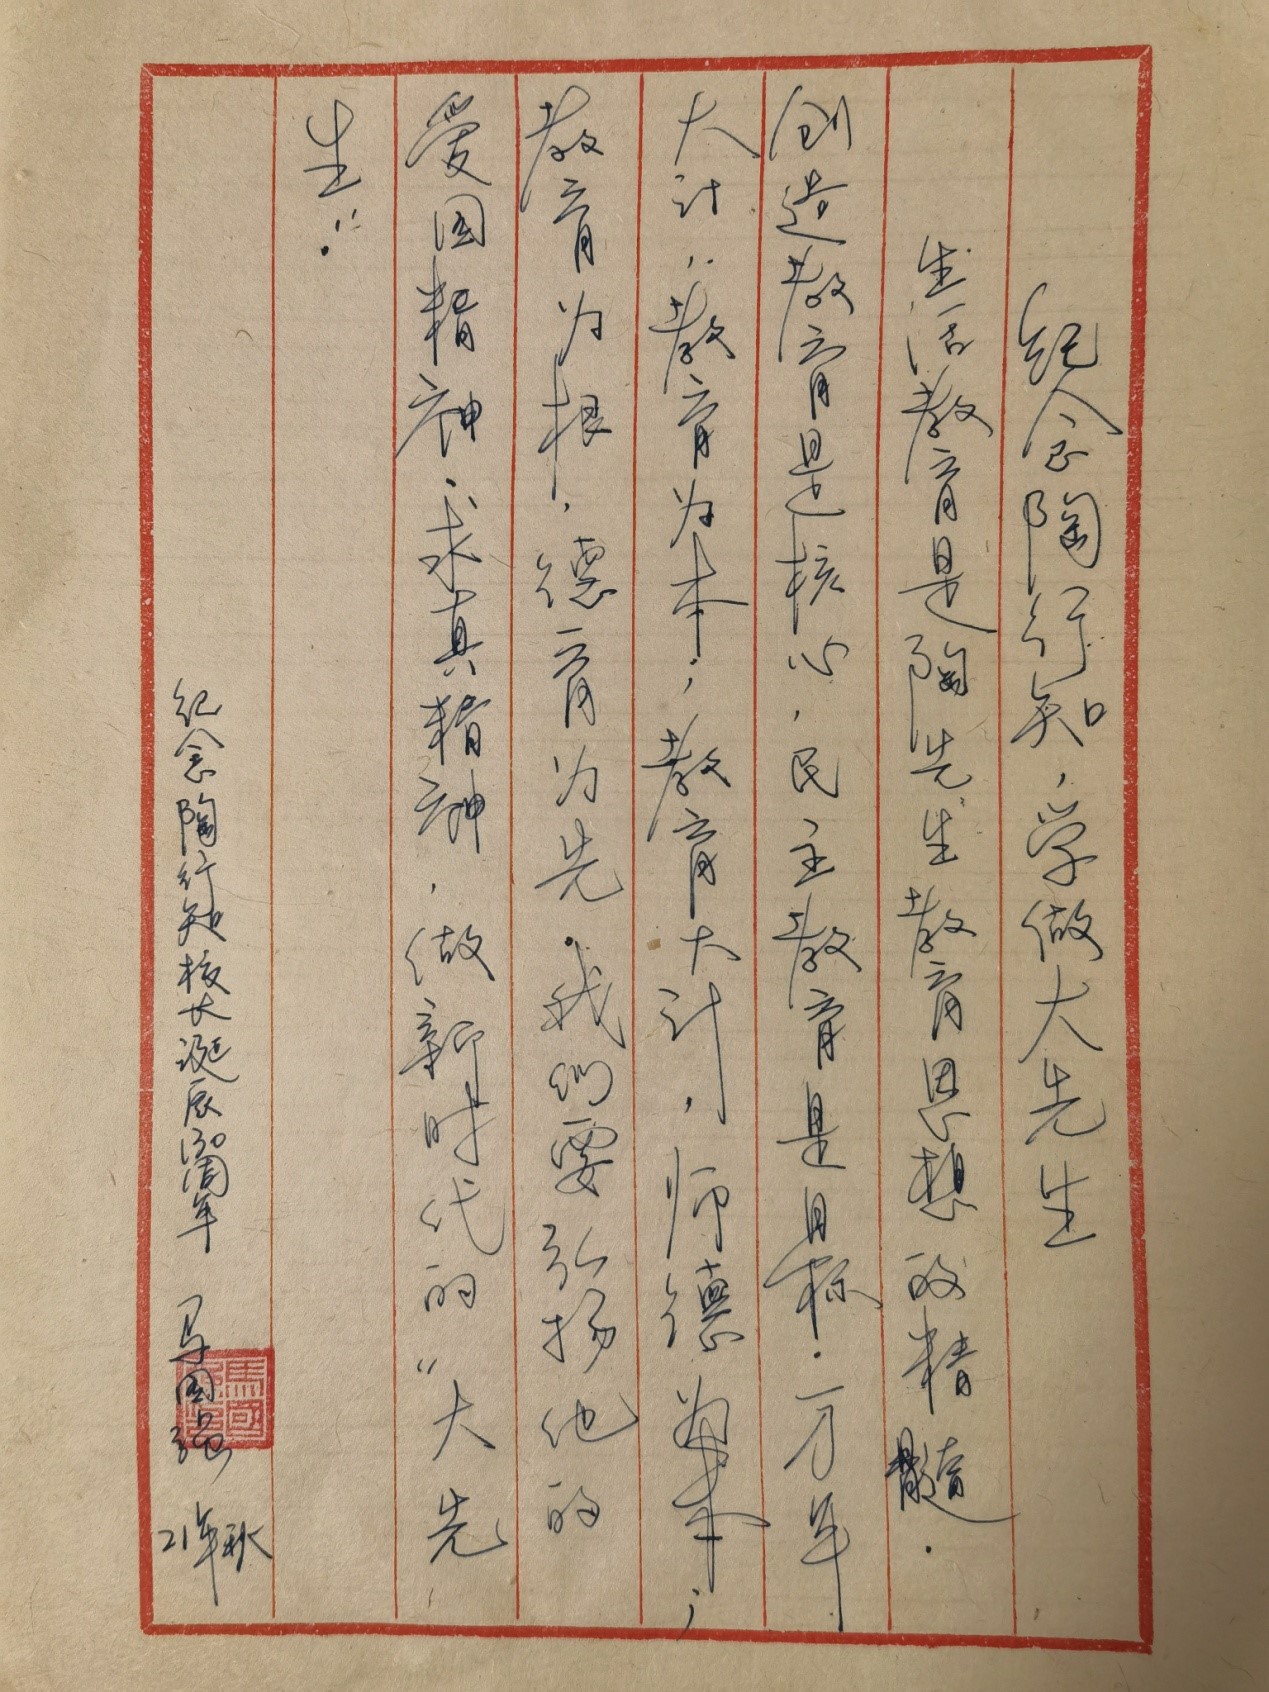 纪念陶行知，学做大先生
生活教育是陶先生教育思想的精髓．
创造教育是核心，民主教育是目标．万年
大计，教育为本，教育大计，师德为本，
教育为根，德育为先．我们要弘扬他的
爱国精神．求真精神，做新时代的“大先
生”．
纪念陶行知校长诞辰130周年
马国强
21年秋
马国